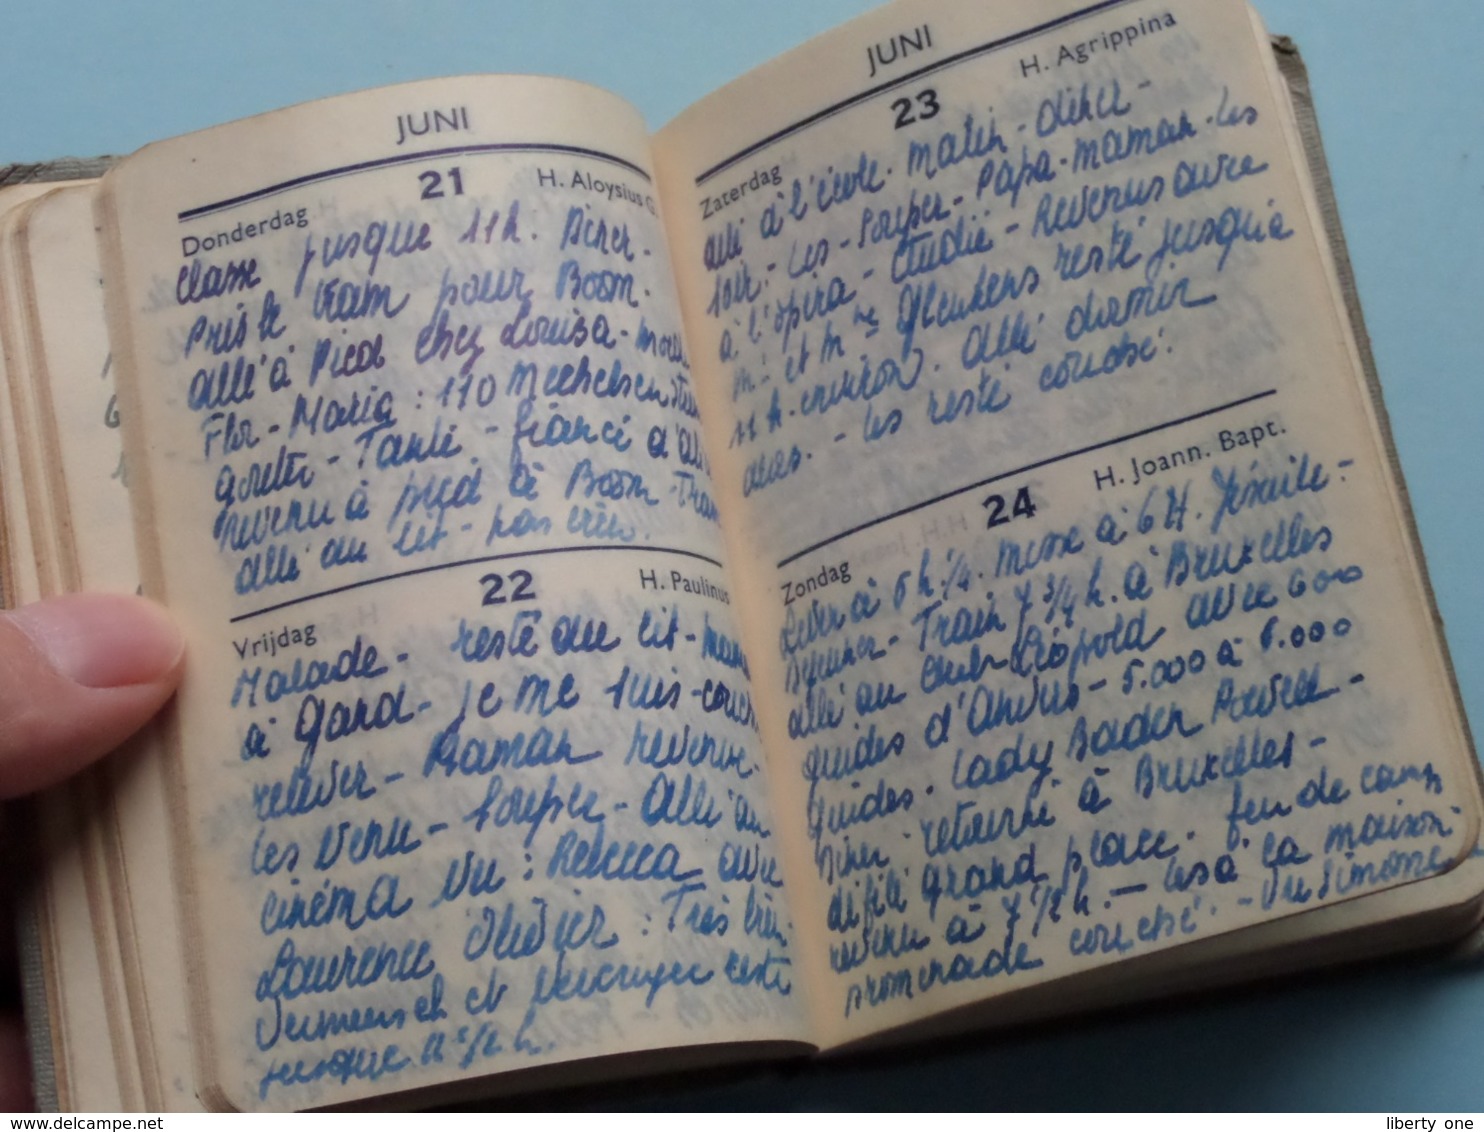 JUNI
21
Donderdag
H. Aloysius G.
classe jusque 11h. Diner -
Pris le tram pour Boom.
allé à pied chez Louisa -
Flor - Maria : 110 Mechelsen
- Tante - fiancé d'
revenu à pied à Boom - Tram
allé au lit - pas
22
Vrijdag
H. Paulinus
Malade - resté au lit -
à Gand - je me suis -
relever - Maman revenue -
Les venu - souper - allé au
cinéma vu : Rebecca avec
Laurence Olivier : Très
et resté
jusque 11 1/2 h.
JUNI
23
Zaterdag
H. Agrippina
allé à l'école matin - diner -
soir - Les - souper - Papa - maman - les
à l'opera - étudié - Revenus avec
Mr et Mme resté jusqu'à
11 h. environ. allé dormir
- Les resté couché.
24
Zondag
H. Joann. Bapt.
Lever à 5 h 1/4. messe à 6 H.
Dejeuner - Train 7 3/4 h. à Bruxelles
allé au club Léopold avec 600
guides d'Anvers - 5.000 à 6.000
guides - Lady Baden Powell -
Diner retourné à Bruxelles -
défilé grand place - feu de camp
revenu à 7 1/2 h. - Les à la maison -
promenade couché. - Vu Simone
www.delcampe.net
liberty one